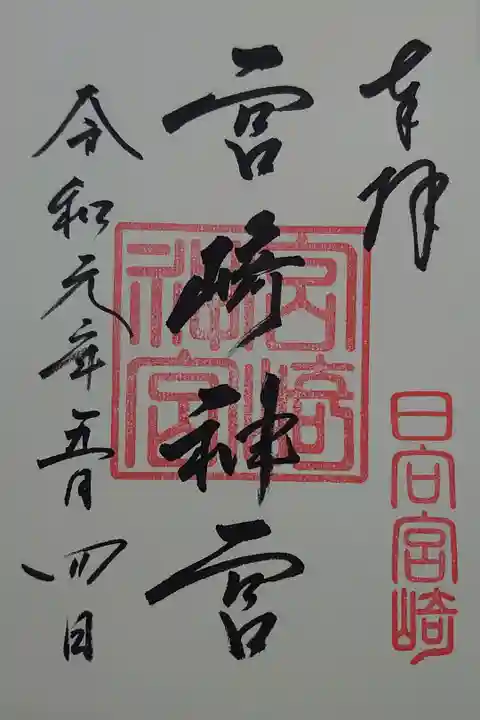 奉拝
日向宮崎
宮崎神宮
宮崎神宮
令和元年五月四日